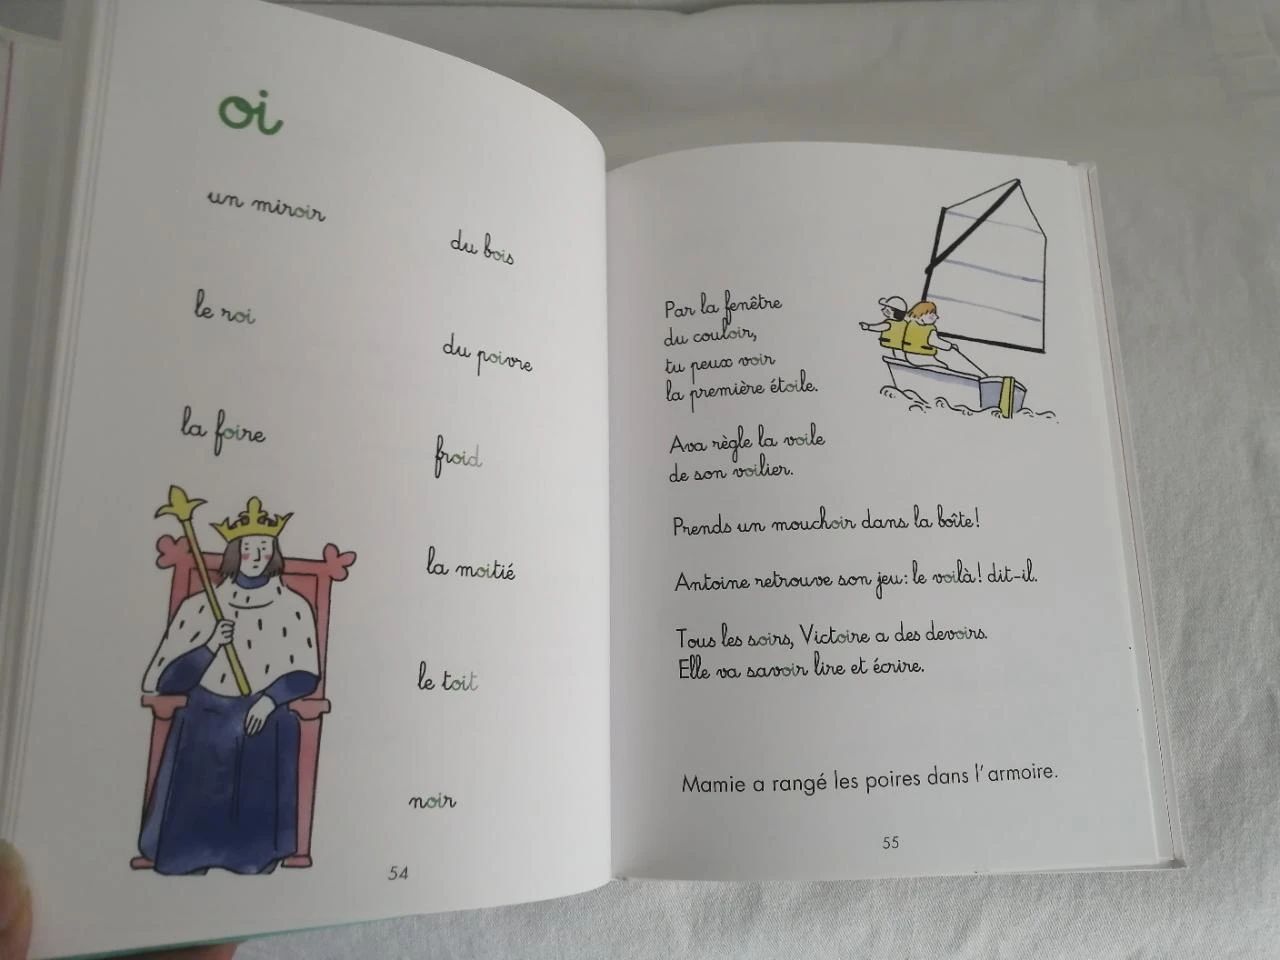 oi
un miroir
le roi
la foire
du bois
du poivre
froid
la moitié
le toit
noir
54
Par la fenêtre
du couloir,
tu peux voir
la première étoile.
Ava règle la voile
de son voilier.
Prends un mouchoir dans la boîte!
Antoine retrouve son jeu: le voilà! dit-il.
Tous les soirs, Victoire a des devoirs.
Elle va savoir lire et écrire.
Mamie a rangé les poires dans l'armoire.
55